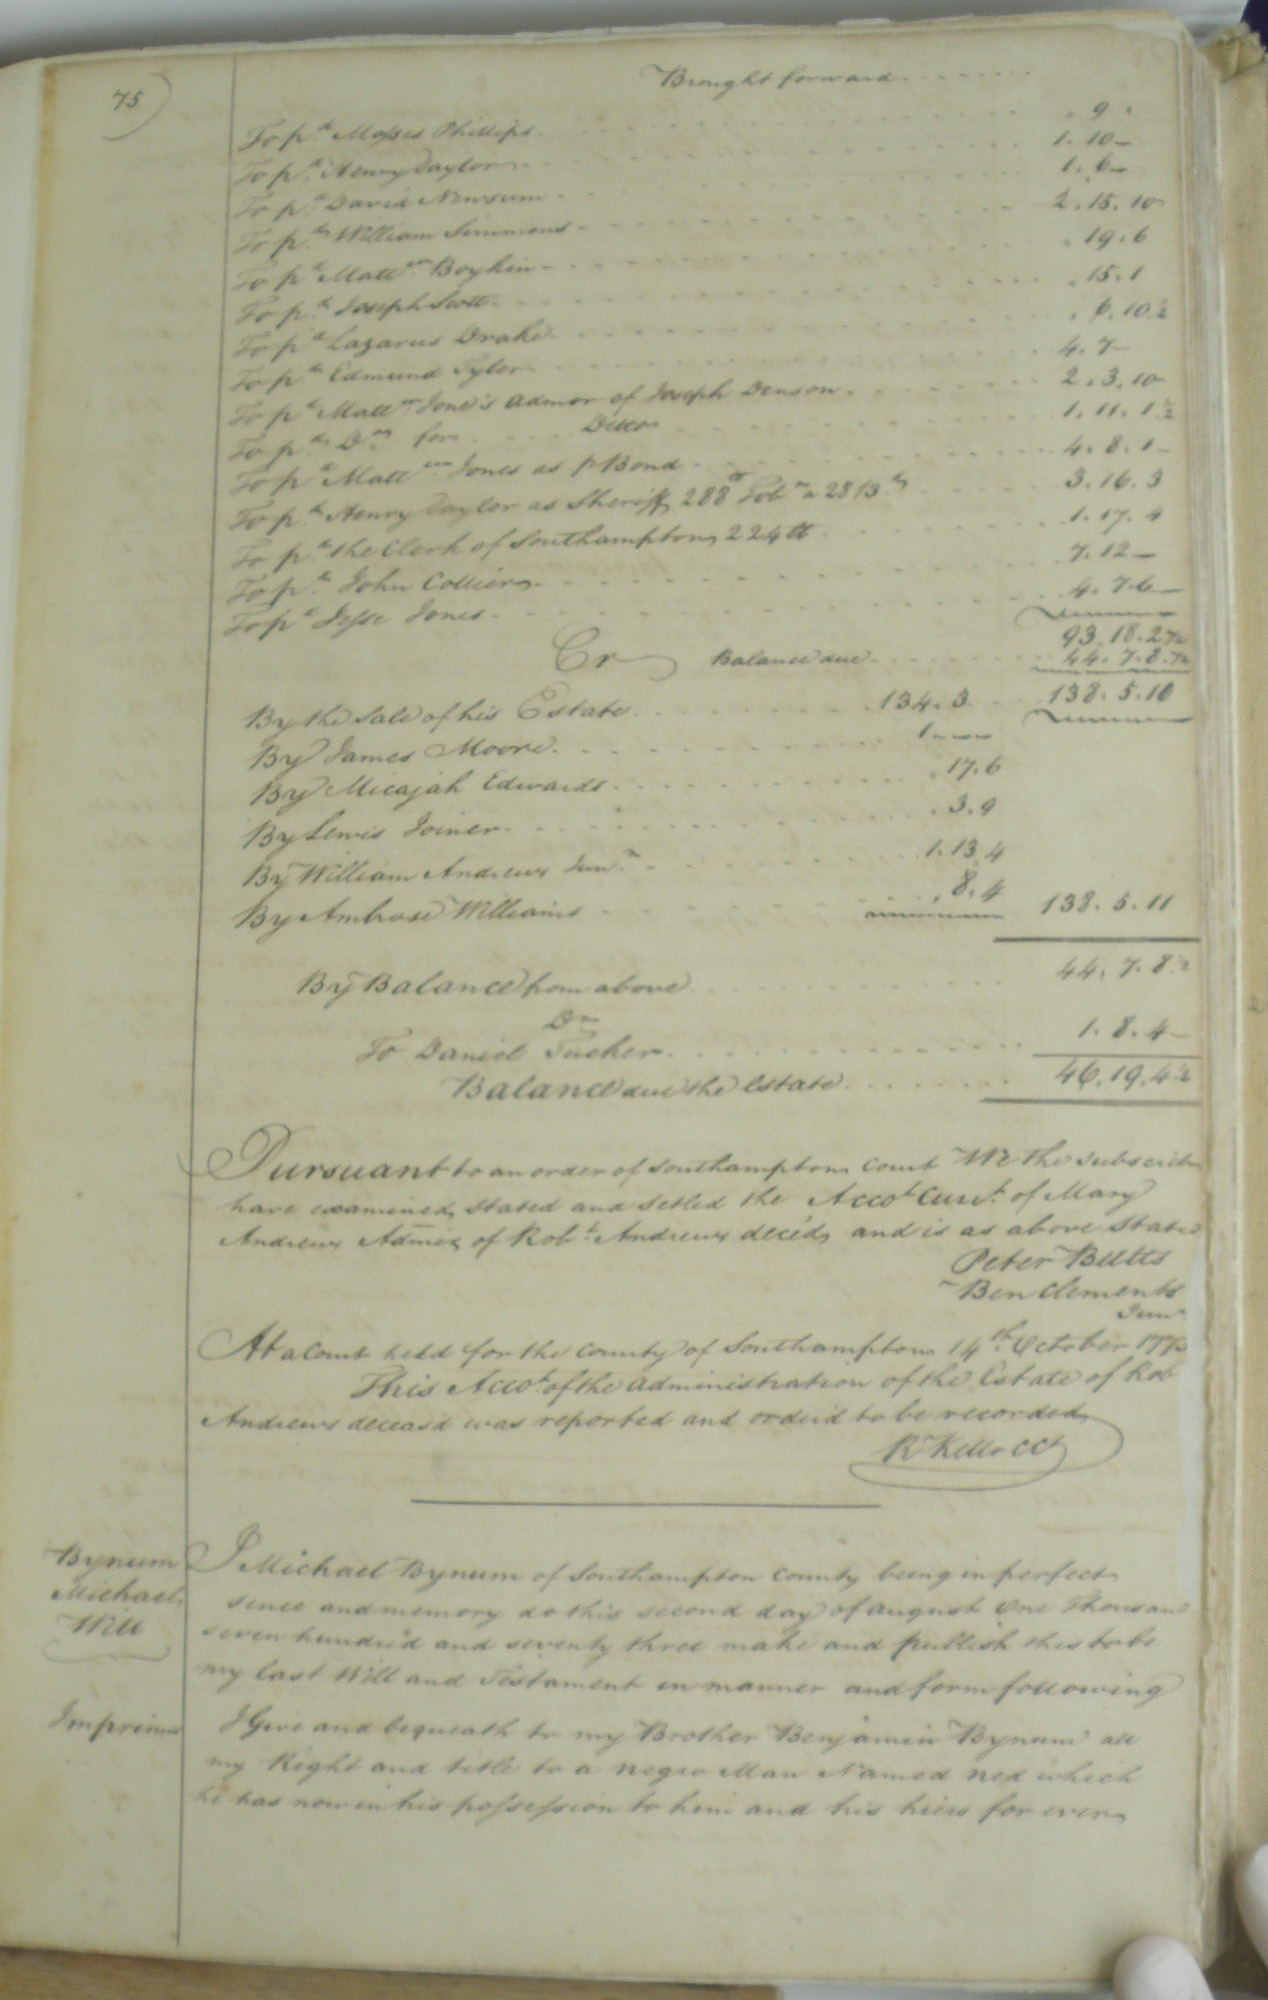 75
Brought forward
To pd. Mosses Phillips . 9 .
To pd. Henry Taylor 1. 10 -
To pd. David Newsum 1. 6 -
To pd. William Simmons 2. 15. 10
To pd. Mattw. Boykin . 19. 6
To pd. Joseph Scott . 15. 1
To pd. Lazarus Drake . 6. 10 ½
To pd. Edmund Tyler 4. 7 -
To pd. Mattw. Jone's admor of Joseph Denson 2. 3. 10
To pd. Do. for Ditto 1. 11. 1 ½
To pd. Mattw. Jones as p Bond 4. 8. 1
To pd. Henry Taylor as Sheriff 288 lb Tobo. a 28/3 3. 16. 3
To pd. the Clerk of Southampton 224 lb 1. 17. 4
To pd. John Collier 7. 12 -
To pd. Jesse Jones 4. 7. 6
93. 18. 2 ½
Cr Balance due 44. 7. 8. ½
By the Sale of his Estate 134. 3 138. 5. 10
By James Moore 1
By Micajah Edwards . 17. 6
By Lewis Joiner . 3. 9
By William Andrews Junr. 1. 13. 4
By Ambrose Williams . 8. 4 138. 5. 11
By Balance from above 44. 7. 8 ½
Dr
To Daniel Tucker 1. 8. 4
Balance due the Estate 46. 19. 4 ½
Pursuant to an order of Southampton Court We the subscribe
have examined, stated and setled the Accot. Curt. of Mary
Andrews Admix of Robt. Andrews deced, and is as above State
Peter Butts
Ben Clements
Junr
At a Court held for the County of Southampton 14th. October 177
This Accot. of the administration of the Estate of Rob
Andrews deceasd was reported and orderd to be recorded
R Kello CC
Bynum
Michael,
Will
I Michael Bynum of Southampton County being in perfect
sence and memory do this second day of august One Thousan
seven hundred and seventy three make and publish this to be
my last Will and Testament in manner and form following
Imprimis
I Give and bequeath to my Brother Benjamin Bynum all
my Right and title to a negro Man Named Ned which
he has now in his possession to him and his hiers for ever